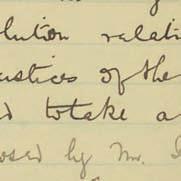 olution relati
ustices of the
d to take a
osed by Mr. S